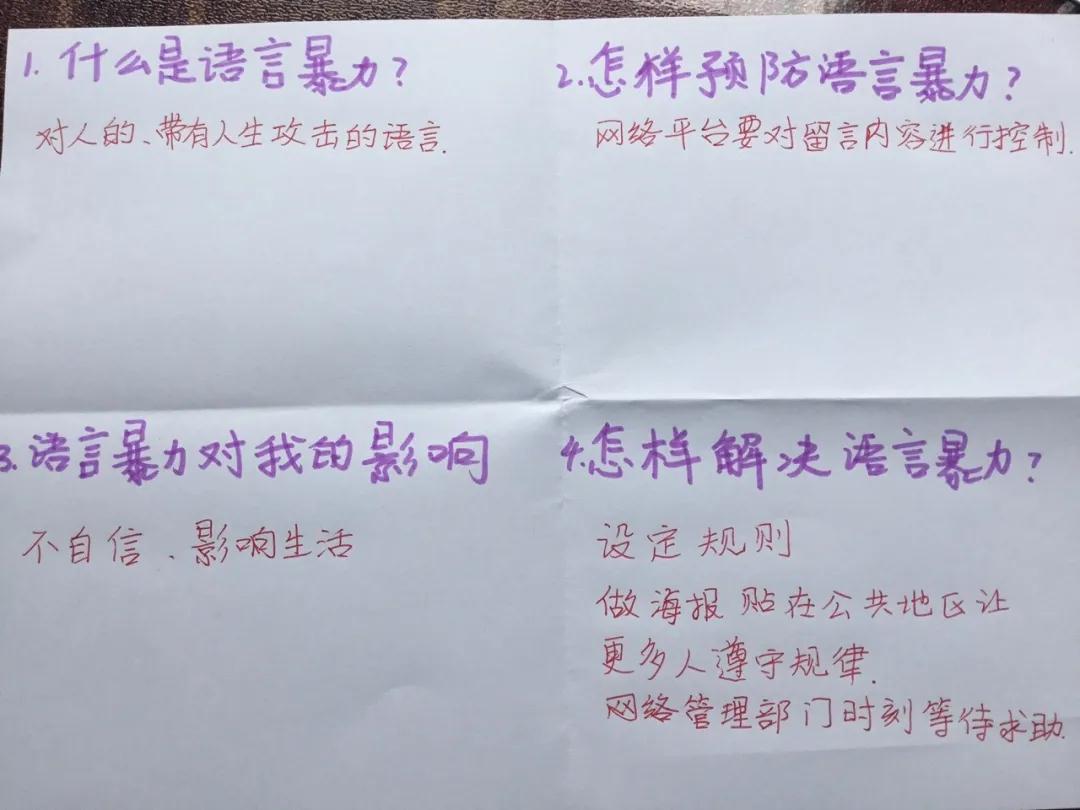 1. 什么是语言暴力?
对人的、带有人生攻击的语言.
2.怎样预防语言暴力?
网络平台要对留言内容进行控制.
3.语言暴力对我的影响
不自信、影响生活
4.怎样解决语言暴力?
设定规则
做海报贴在公共地区让
更多人遵守规律.
网络管理部门时刻等待求助.